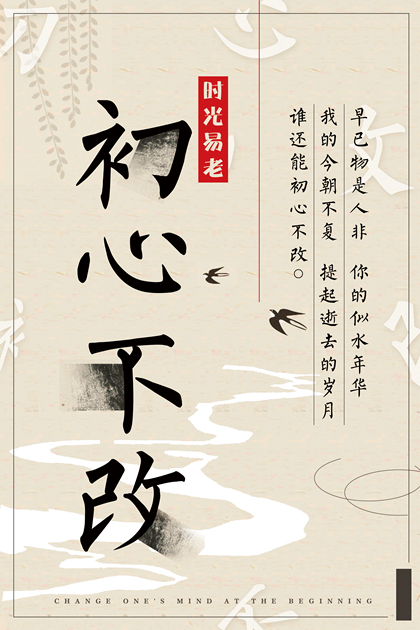 时光易老
初心下改
早已物是人非 你的似水年华
我的今朝不复 提起逝去的岁月
谁还能初心不改。
心
改
CHANGE ONE'S MIND AT THE BEGINNING